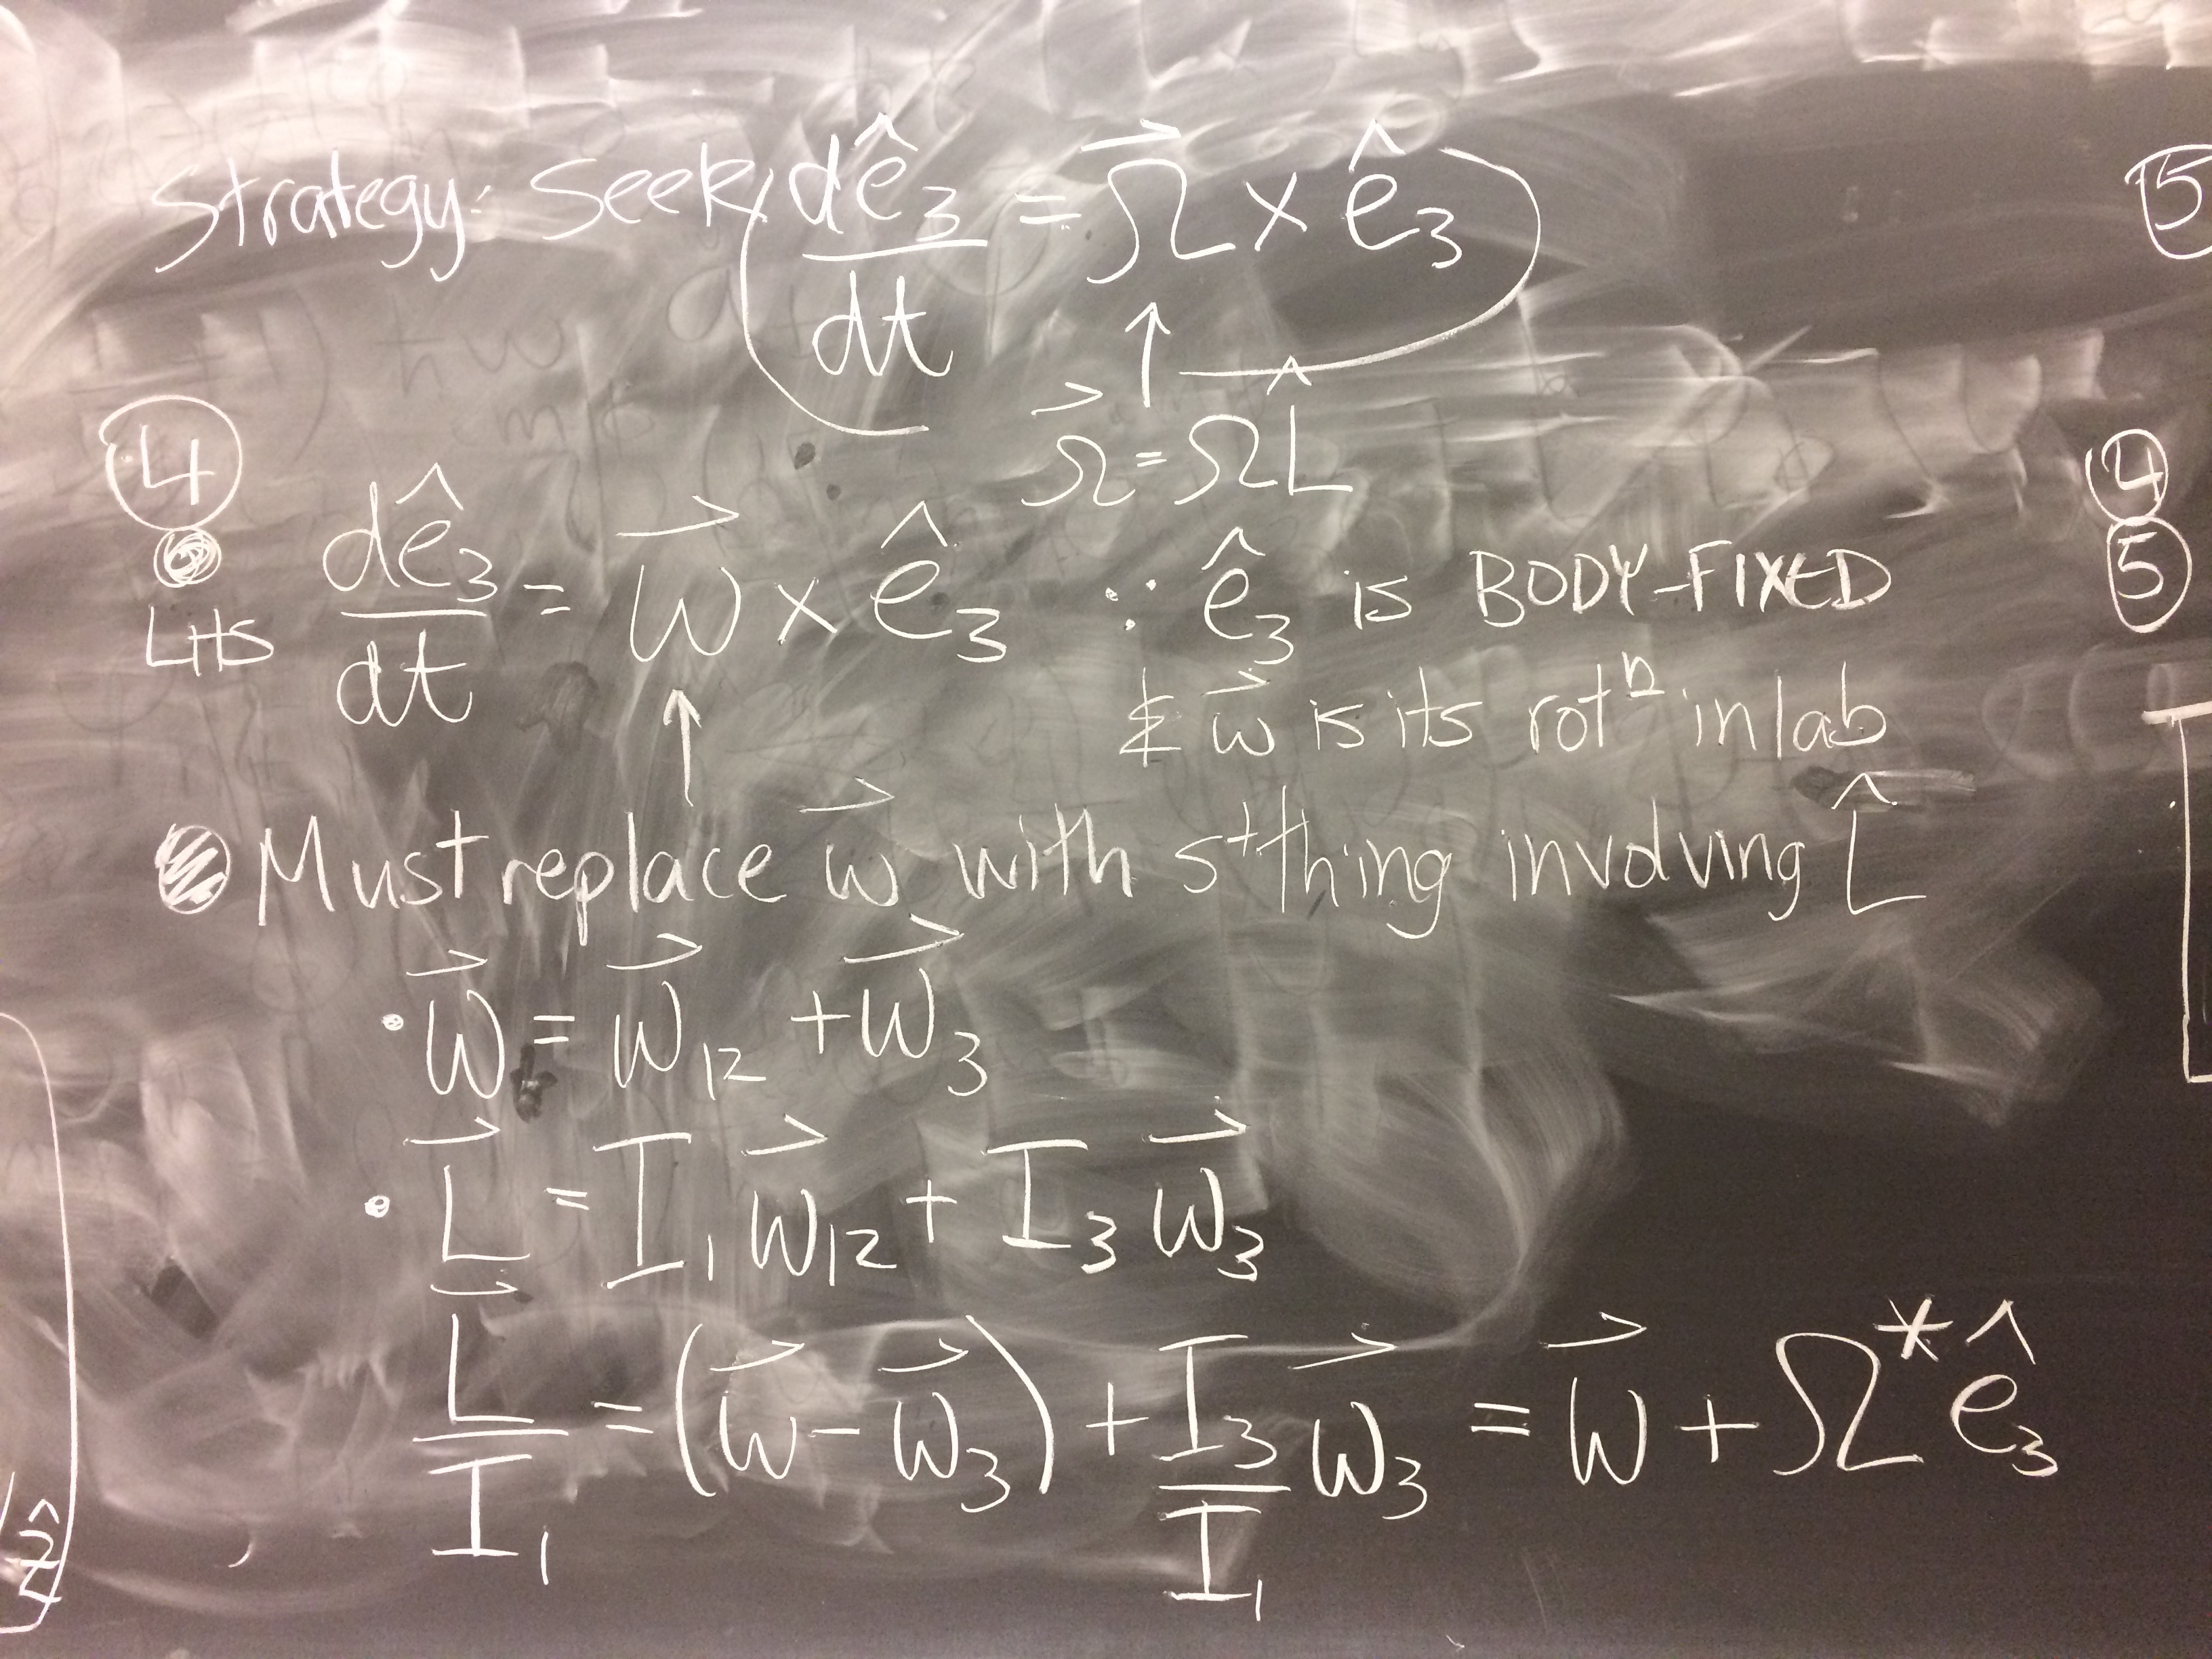 Strategy: Seek dê₃/dt = Ω⃗ × ê₃
↑
Ω⃗ = ΩL̂
④
LHS dê₃/dt = ω⃗ × ê₃ ∵ ê₃ is BODY-FIXED
↑ & ω⃗ is its rotⁿ in lab
Must replace ω⃗ with s⁺thing involving L̂
• ω⃗ = ω⃗₁₂ + ω⃗₃
• L⃗ = I₁ ω⃗₁₂ + I₃ ω⃗₃
L⃗/I₁ = (ω⃗ - ω⃗₃) + I₃/I₁ ω⃗₃ = ω⃗ + Ω* ê₃
⑤
④
⑤
ẑ